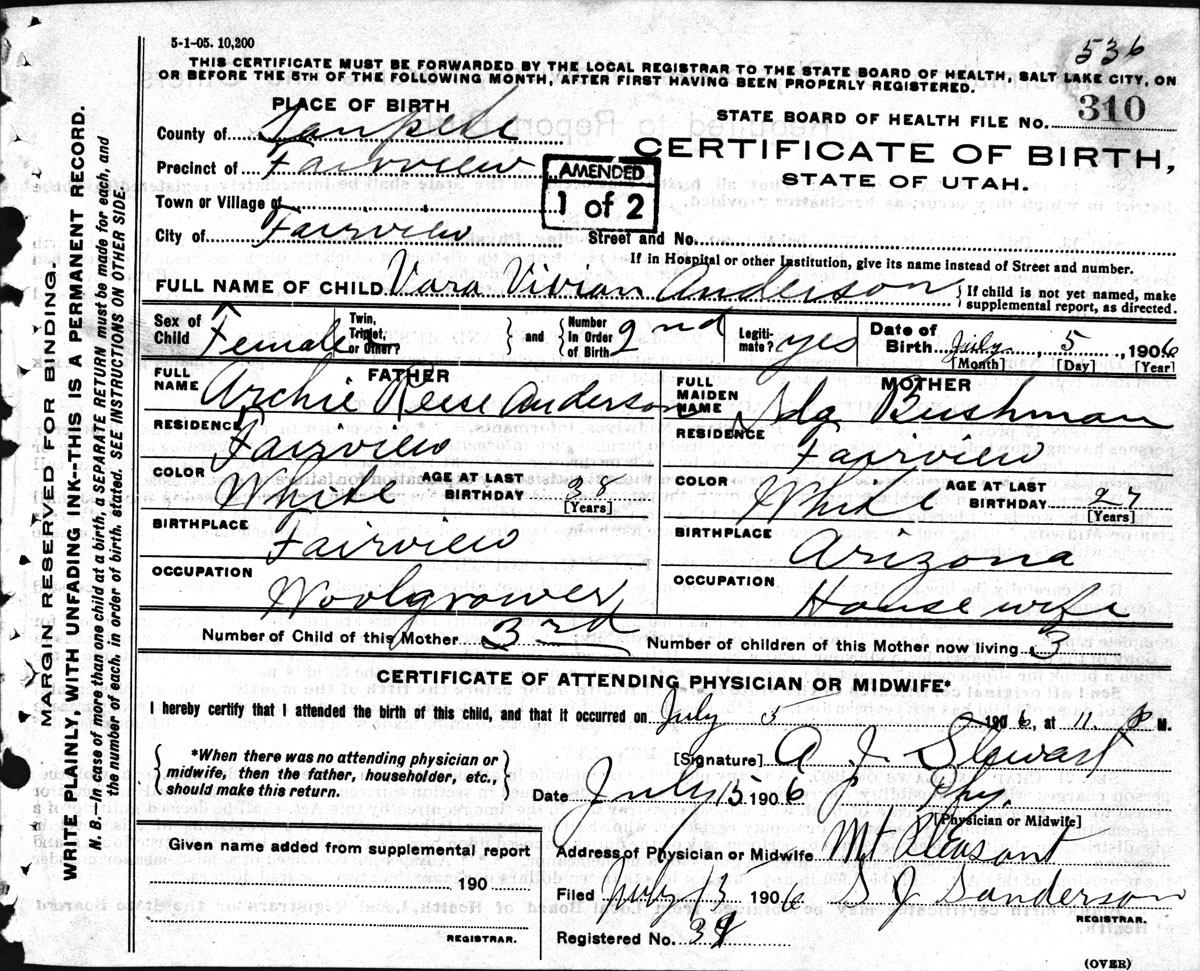 5-1-05. 10,200
536
THIS CERTIFICATE MUST BE FORWARDED BY THE LOCAL REGISTRAR TO THE STATE BOARD OF HEALTH, SALT LAKE CITY, ON
OR BEFORE THE 5TH OF THE FOLLOWING MONTH, AFTER FIRST HAVING BEEN PROPERLY REGISTERED.
PLACE OF BIRTH
STATE BOARD OF HEALTH FILE NO. 310
County of Sanpete
CERTIFICATE OF BIRTH,
Precinct of Fairview
STATE OF UTAH.
AMENDED
1 of 2
Town or Village of
City of Fairview
Street and No.
If in Hospital or other Institution, give its name instead of Street and number.
FULL NAME OF CHILD Vara Vivian Anderson
{ If child is not yet named, make
supplemental report, as directed.
Sex of Child Female
Twin, Triplet, or Other?
} and { Number In Order of Birth 2nd
Legitimate? yes
Date of Birth July 5, 1906
[Month] [Day] [Year]
FATHER
FULL NAME Archie Reese Anderson
RESIDENCE Fairview
COLOR White
AGE AT LAST BIRTHDAY 38
[Years]
BIRTHPLACE Fairview
OCCUPATION Woolgrower
MOTHER
FULL MAIDEN NAME Ida Bushman
RESIDENCE Fairview
COLOR White
AGE AT LAST BIRTHDAY 27
[Years]
BIRTHPLACE Arizona
OCCUPATION Housewife
Number of Child of this Mother 3rd
Number of children of this Mother now living 3
CERTIFICATE OF ATTENDING PHYSICIAN OR MIDWIFE*
I hereby certify that I attended the birth of this child, and that it occurred on July 5 1906, at 11 P M.
*When there was no attending physician or
midwife, then the father, householder, etc.,
should make this return.
[Signature] A J Stewart
Date July 13 1906 Phy.
[Physician or Midwife]
Given name added from supplemental report
190
REGISTRAR.
Address of Physician or Midwife Mt Pleasant
Filed July 13 1906 S J Sanderson
REGISTRAR.
Registered No. 39
(OVER)
MARGIN RESERVED FOR BINDING.
WRITE PLAINLY, WITH UNFADING INK--THIS IS A PERMANENT RECORD.
N. B.--In case of more than one child at a birth, a SEPARATE RETURN must be made for each, and
the number of each, in order of birth, stated. SEE INSTRUCTIONS ON OTHER SIDE